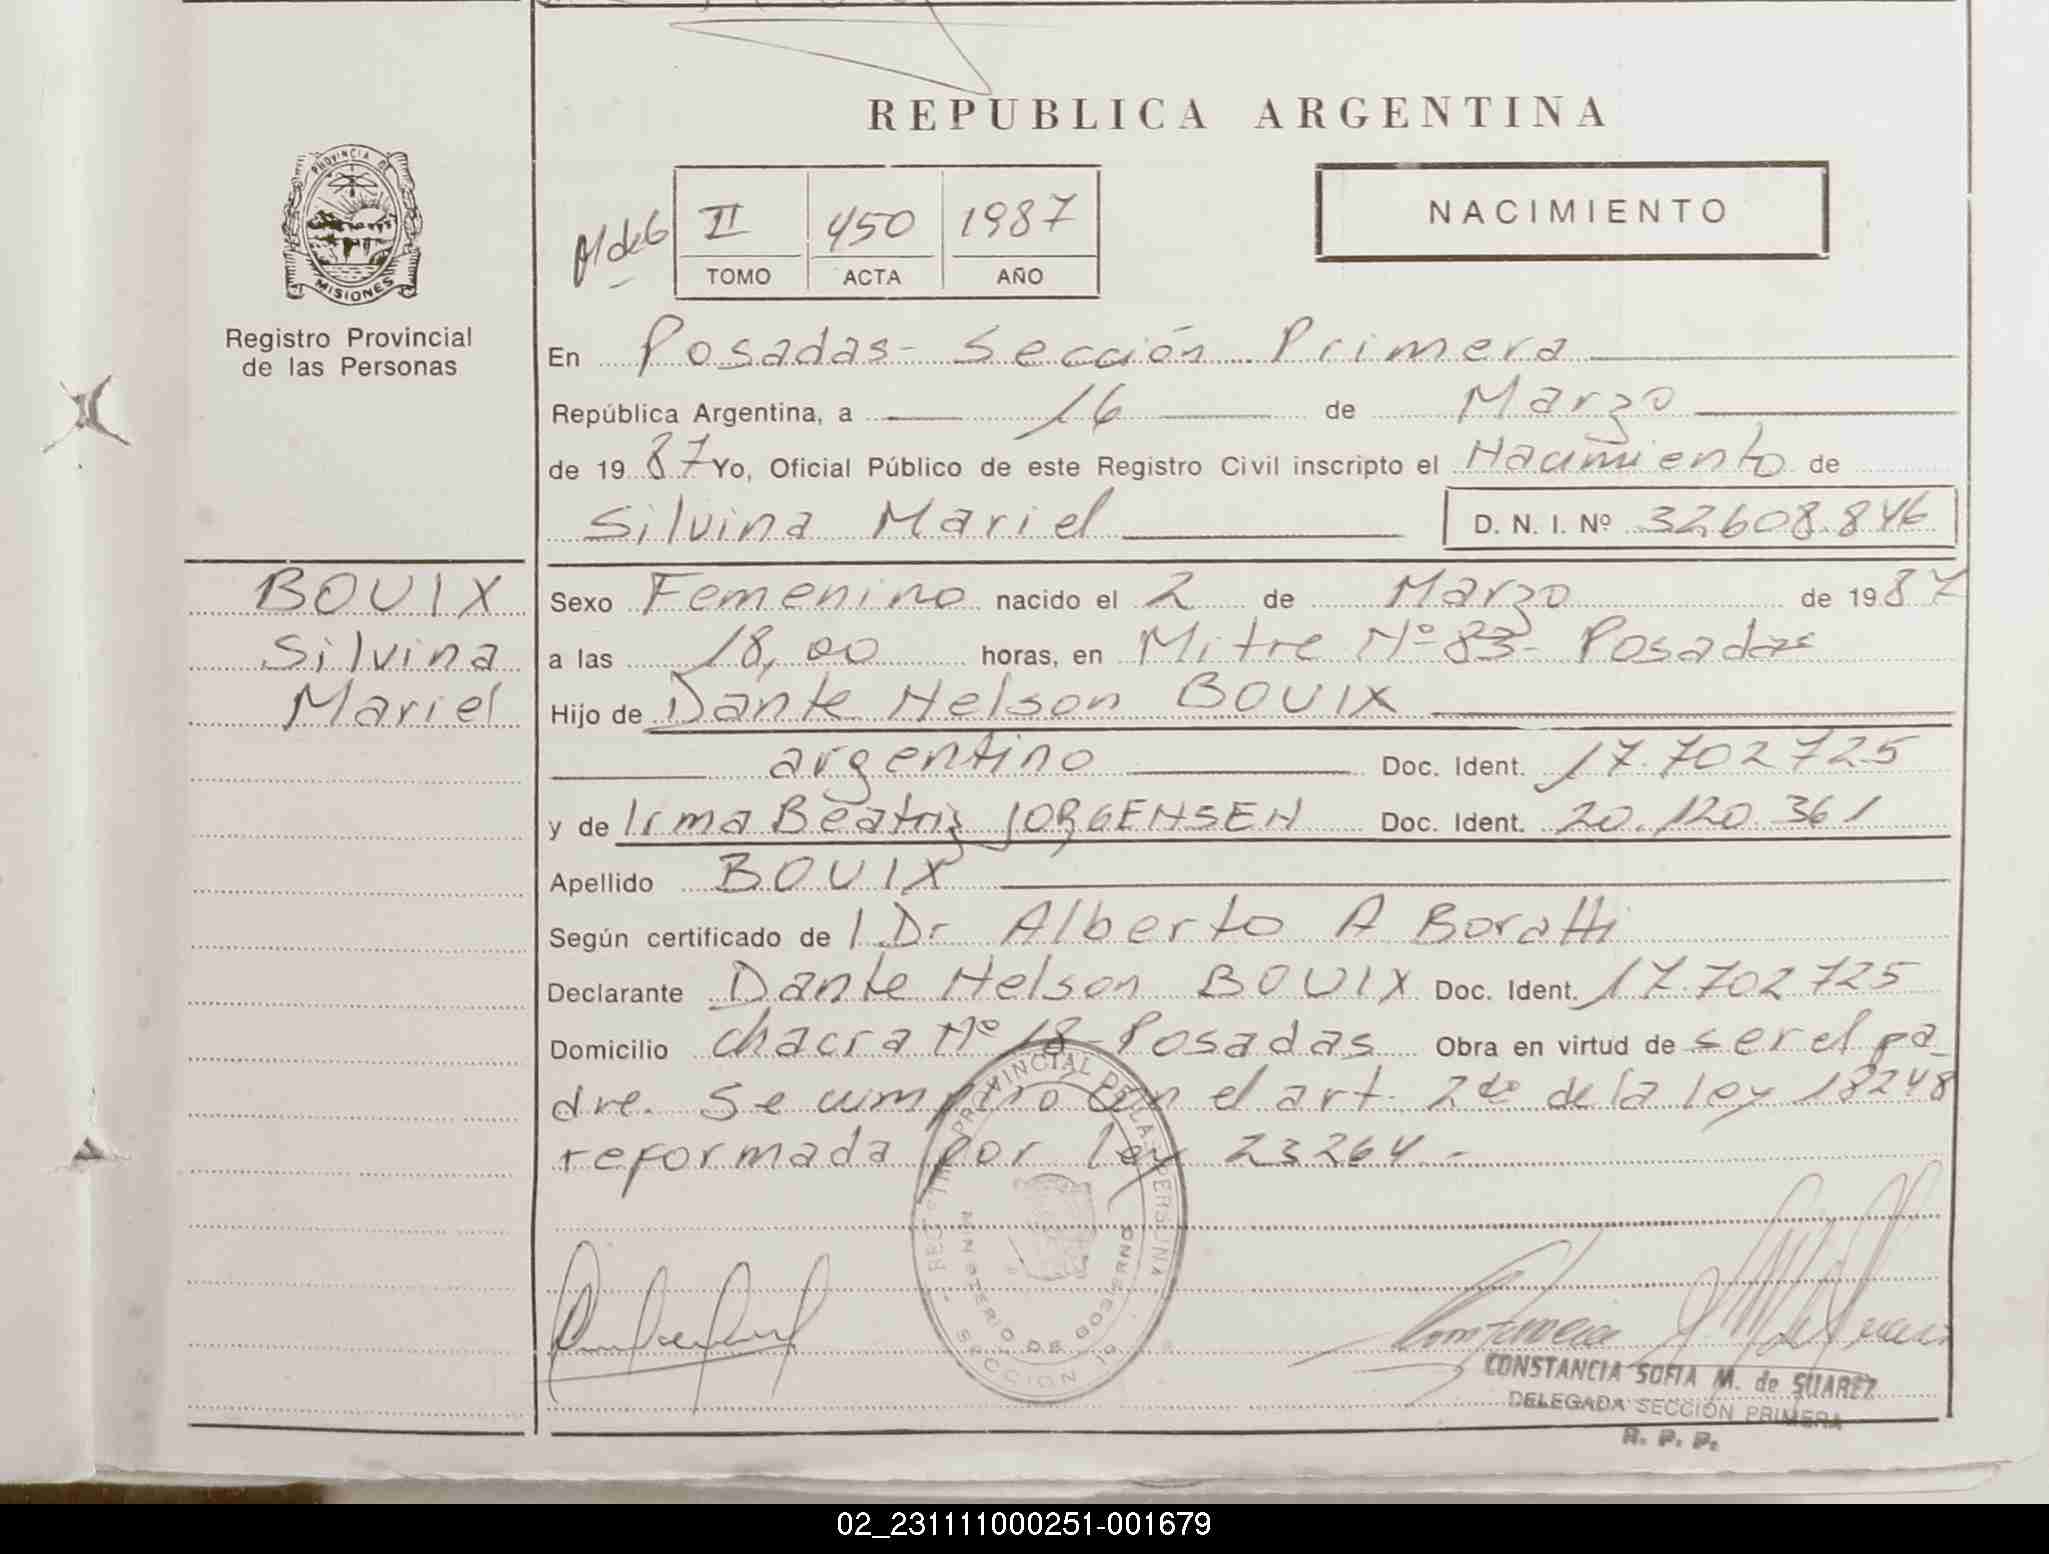 REPUBLICA ARGENTINA
PROVINCIA DE
MISIONES
Registro Provincial
de las Personas
II 450 1987
TOMO ACTA AÑO
NACIMIENTO
En Posadas - Sección Primera
República Argentina, a 16 de Marzo
de 19 87 Yo, Oficial Público de este Registro Civil inscripto el Nacimiento de
Silvina Mariel D. N. I. Nº 32.608.846
BOUIX
Silvina
Mariel
Sexo Femenino nacido el 2 de Marzo de 19 87
a las 18,00 horas, en Mitre Nº 83 - Posadas
Hijo de Dante Nelson BOUIX
argentino Doc. Ident. 17.702725
y de Irma Beatriz JORGENSEN Doc. Ident. 20.120.361
Apellido BOUIX
Según certificado de l Dr Alberto A Boratti
Declarante Dante Nelson BOUIX Doc. Ident. 17.702725
Domicilio chacra Nº 18 - Posadas Obra en virtud de ser el pa-
dre. Se cumplió con el art. 2do de la ley 18248
reformada por ley 23264 -
MINISTERIO DE GOBIERNO
SECCION 1a
CONSTANCIA SOFIA M. de SUAREZ
DELEGADA SECCIÓN PRIMERA
R. P. P.
02_231111000251-001679